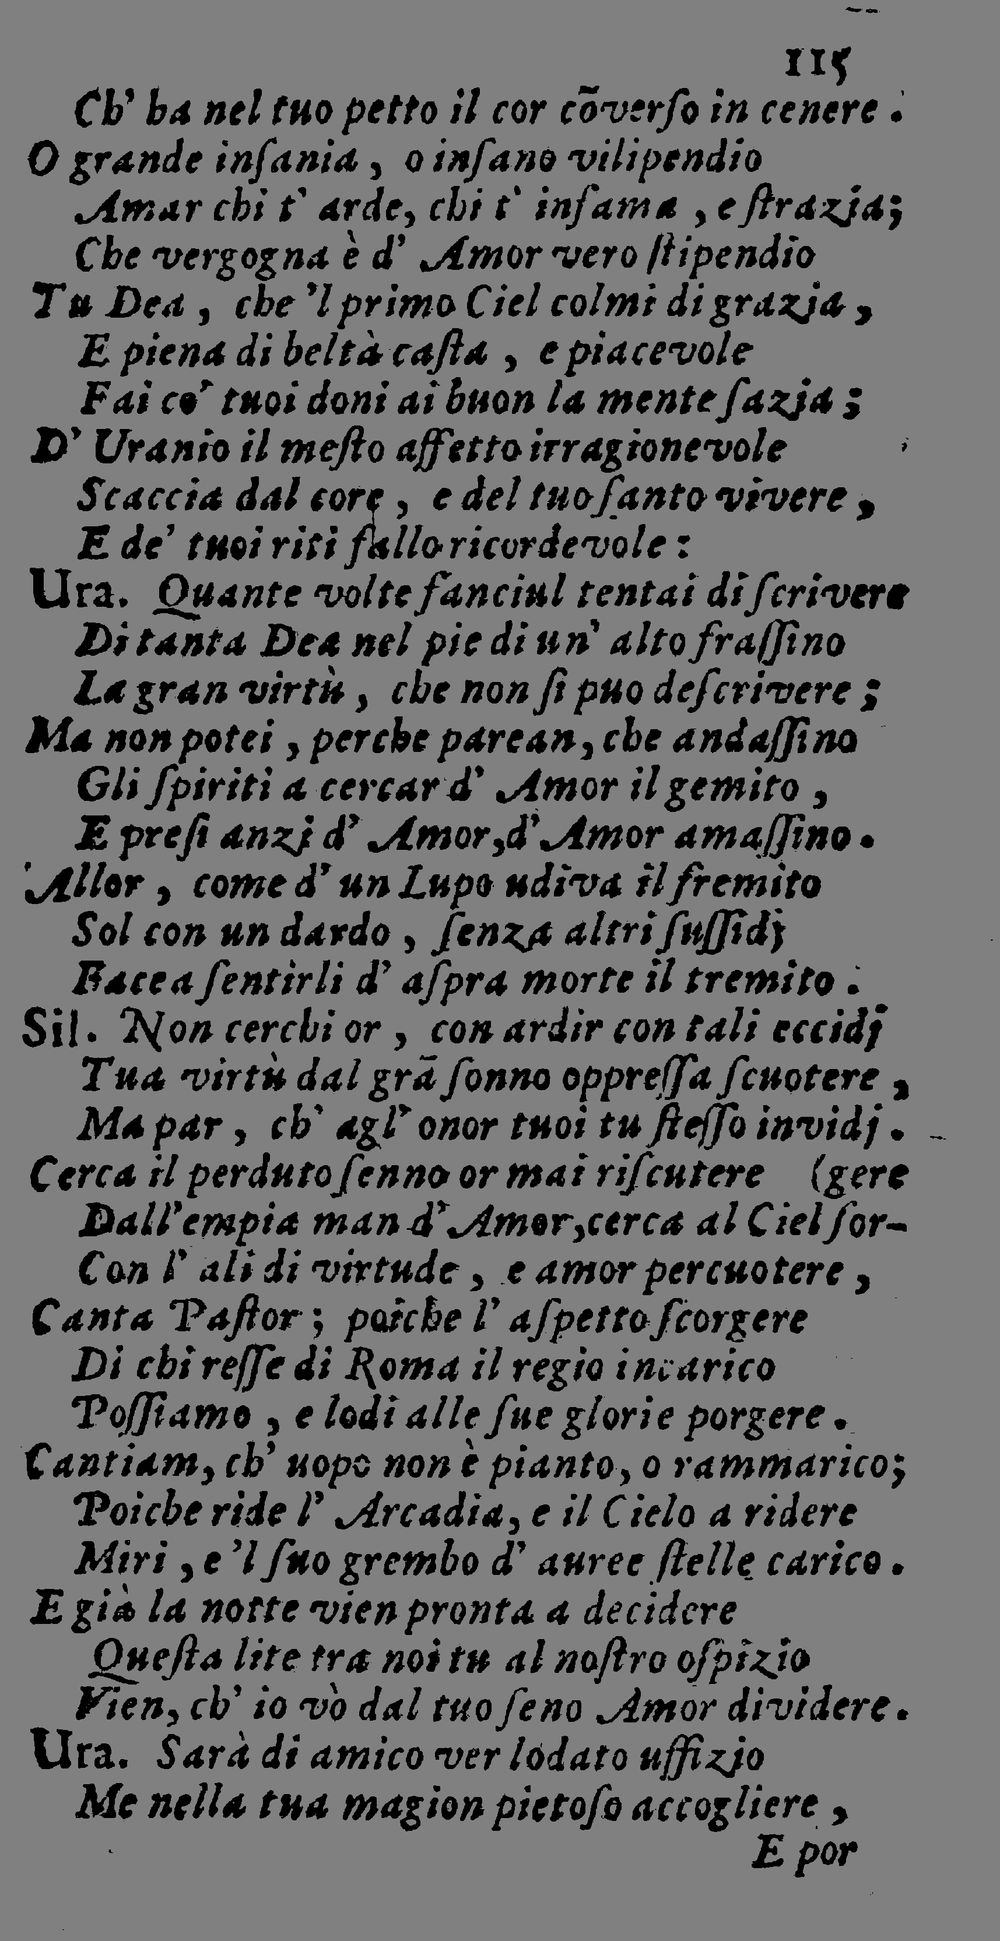 115
Ch' ha nel tuo petto il cor cõverſo in cenere.
O grande inſania, o inſano vilipendio
Amar chi t' arde, chi t' infama, e ſtrazja;
Che vergogna è d' Amor vero ſtipendio
Tu Dea, che 'l primo Ciel colmi di grazja,
E piena di beltà caſta, e piacevole
Fai co' tuoi doni ai buon la mente ſazja;
D' Uranio il meſto affetto irragionevole
Scaccia dal core, e del tuo ſanto vivere,
E de' tuoi riti fallo ricordevole:
Ura. Quante volte fanciul tentai di ſcrivere
Di tanta Dea nel pie di un' alto fraſſino
La gran virtù, che non ſi puo deſcrivere;
Ma non potei, perche parean, che andaſſino
Gli ſpiriti a cercar d' Amor il gemito,
E preſi anzi d' Amor, d' Amor amaſſino.
Allor, come d' un Lupo udiva il fremito
Sol con un dardo, ſenza altri ſuſſidj
Facea ſentirli d' aſpra morte il tremito.
Sil. Non cerchi or, con ardir con tali eccidj
Tua virtù dal grã ſonno oppreſſa ſcuotere,
Ma par, ch' agl' onor tuoi tu ſteſſo invidj.
Cerca il perduto ſenno or mai riſcutere (gere
Dall' empia man d' Amor, cerca al Ciel ſor-
Con l' ali di virtude, e amor percuotere,
Canta Paſtor; poiche l' aſpetto ſcorgere
Di chi reſſe di Roma il regio incarico
Poſſiamo, e lodi alle ſue glorie porgere.
Cantiam, ch' uopo non è pianto, o rammarico;
Poiche ride l' Arcadia, e il Cielo a ridere
Miri, e 'l ſuo grembo d' auree ſtelle carico.
E già la notte vien pronta a decidere
Queſta lite tra noi tu al noſtro oſpizio
Vien, ch' io vò dal tuo ſeno Amor dividere.
Ura. Sarà di amico ver lodato uffizjo
Me nella tua magion pietoſo accogliere,
E por